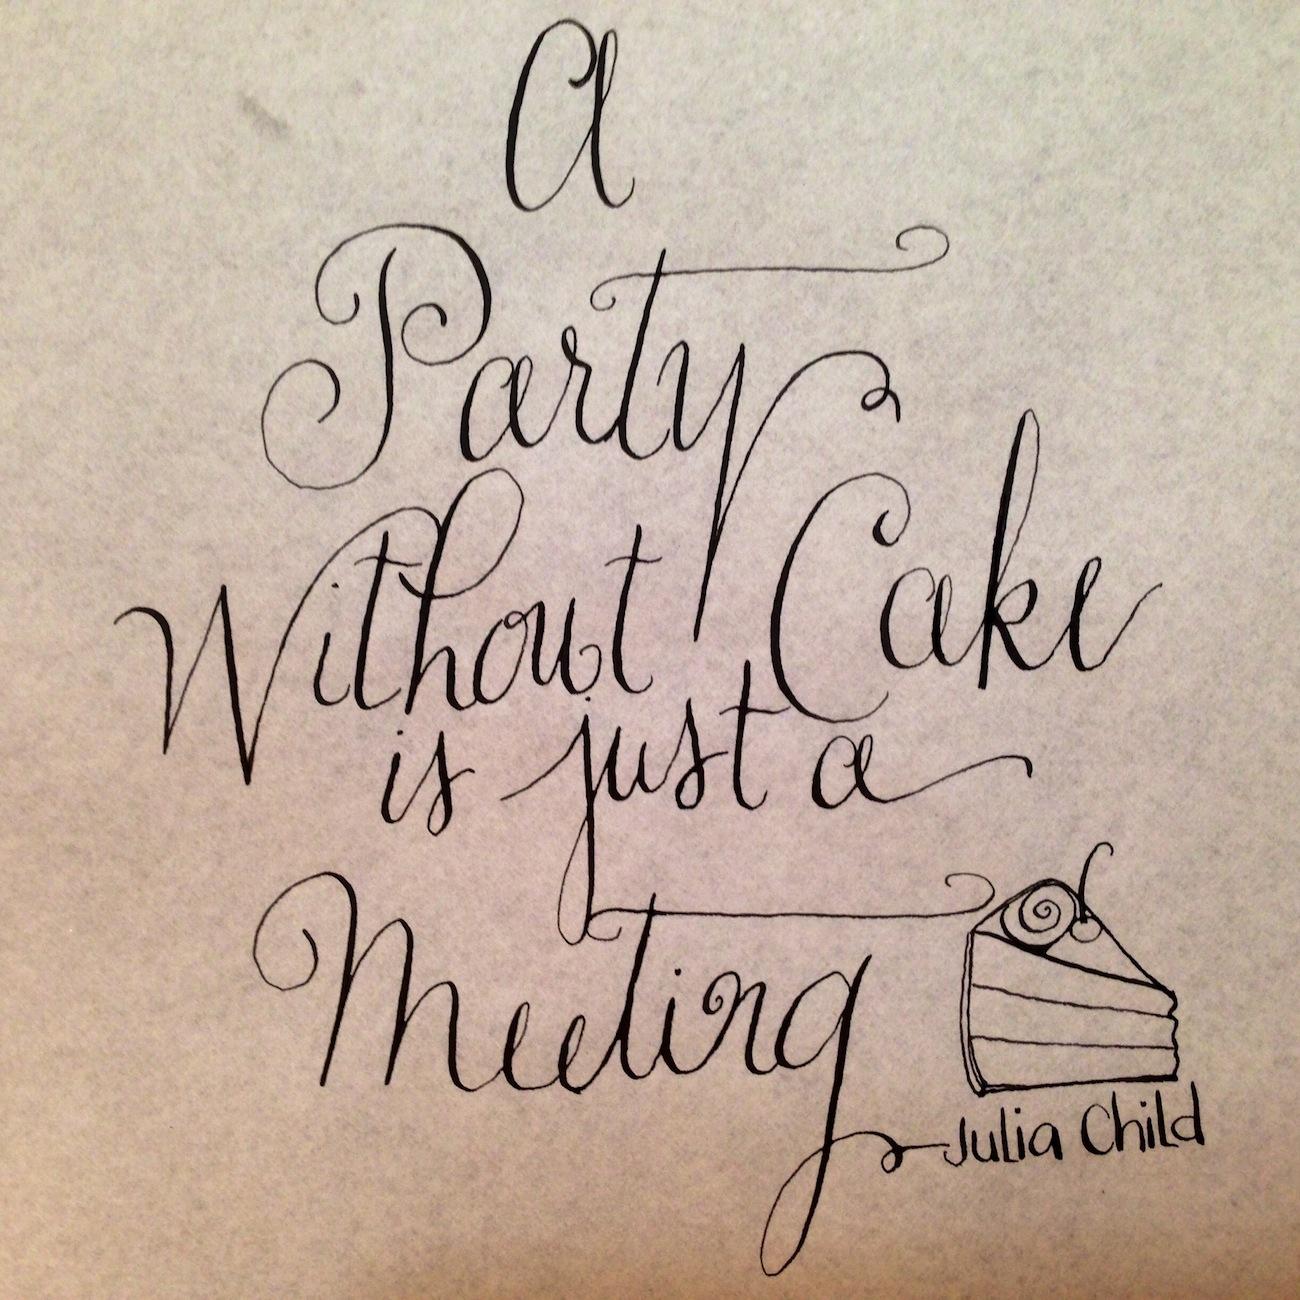 A
Party
Without Cake
is just a
Meeting
Julia Child